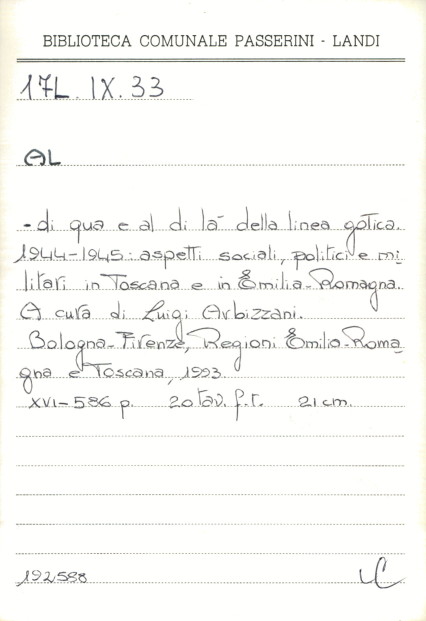 BIBLIOTECA COMUNALE PASSERINI - LANDI
17L. IX. 33
AL
- di qua e al di là della linea gotica.
1944-1945: aspetti sociali, politici e mi-
litari in Toscana e in Emilia-Romagna.
A cura di Luigi Arbizzani.
Bologna-Firenze, Regioni Emilia-Roma-
gna e Toscana, 1993.
XVI-586 p. 20 tav. f.t. 21 cm.
192588